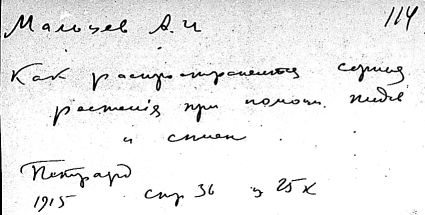 Мальцев А.И 114
Как распространяются сорныя
растенія при помощи людей
и
Петрград
1915 стр 36 ц 25 к